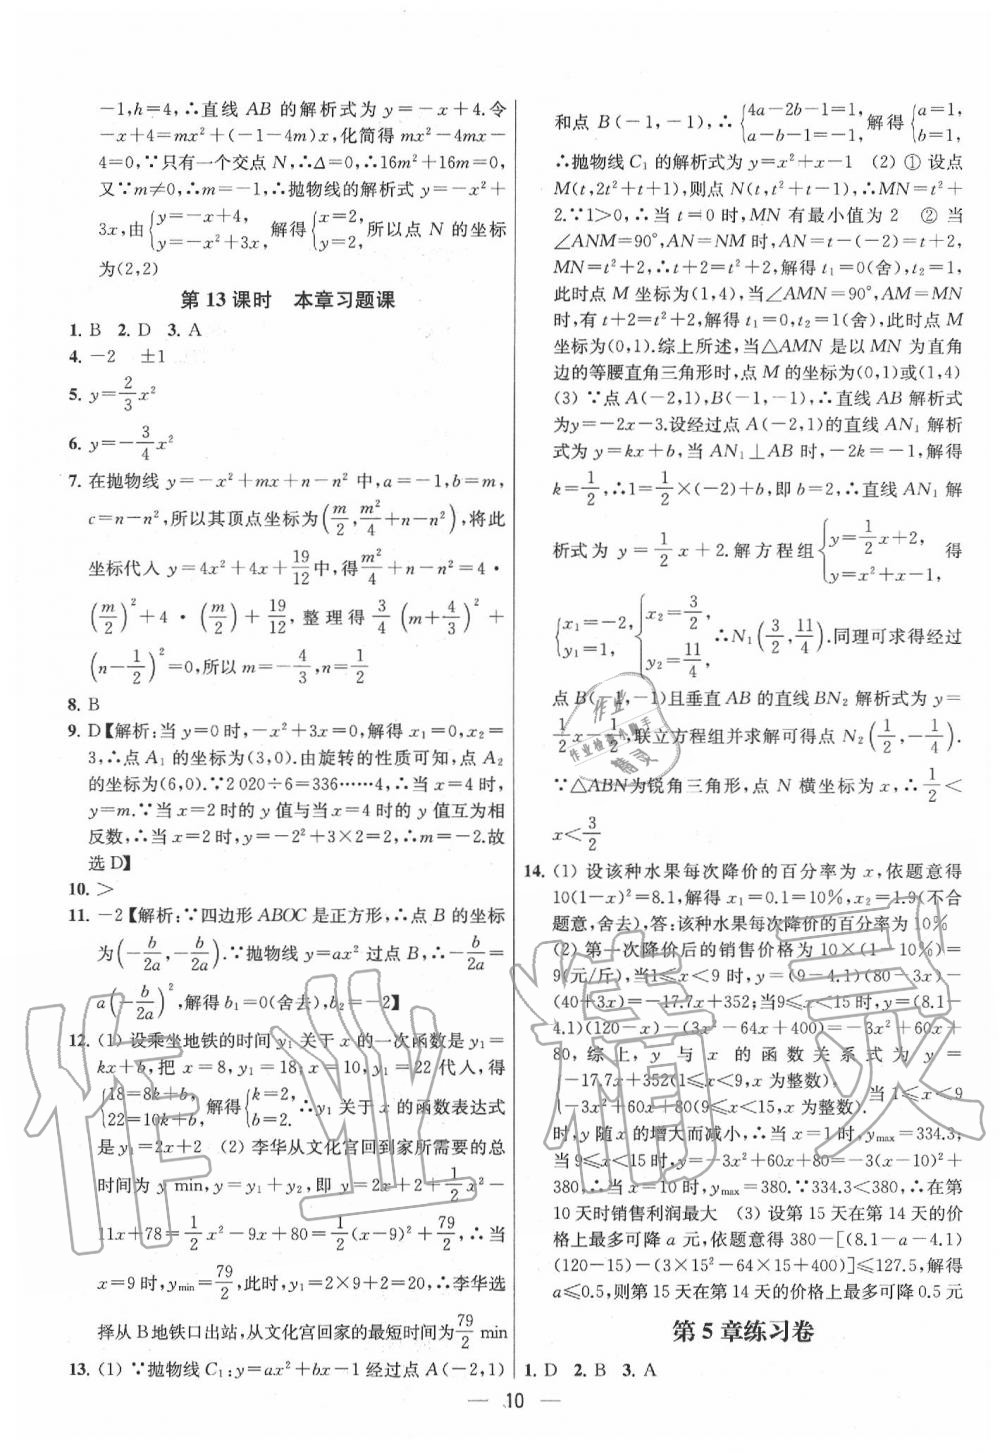 -1,h=4,∴直线 AB 的解析式为 y=-x+4.令
-x+4=mx²+(-1-4m)x,化简得 mx²-4mx-
4=0,∵只有一个交点 N,∴Δ=0,∴16m²+16m=0,
又∵m≠0,∴m=-1,∴抛物线的解析式 y=-x²+
3x,由{y=-x+4, y=-x²+3x, 解得{x=2, y=2, 所以点 N 的坐标
为(2,2)
第 13 课时 本章习题课
1. B 2. D 3. A
4. -2 ±1
5. y=2/3x²
6. y=-3/4x²
7. 在抛物线 y=-x²+mx+n-n² 中,a=-1,b=m,
c=n-n²,所以其顶点坐标为(m/2,m²/4+n-n²),将此
坐标代入 y=4x²+4x+19/12中,得m²/4+n-n²=4·
(m/2)²+4·(m/2)+19/12,整理得 3/4(m+4/3)²+
(n-1/2)²=0,所以 m=-4/3,n=1/2
8. B
9. D【解析:当 y=0 时,-x²+3x=0,解得 x₁=0,x₂=
3,∴点 A₁ 的坐标为(3,0).由旋转的性质可知,点 A₂
的坐标为(6,0).∵2 020÷6=336……4,∴当 x=4 时,
y=m.∵当 x=2 时的 y 值与当 x=4 时的 y 值互为相
反数,∴当 x=2 时,y=-2²+3×2=2,∴m=-2.故
选 D】
10. >
11. -2【解析:∵四边形 ABOC 是正方形,∴点 B 的坐标
为(-b/2a,-b/2a).∵抛物线 y=ax² 过点 B,∴-b/2a=
a(-b/2a)²,解得 b₁=0(舍去),b₂=-2】
12. (1) 设乘坐地铁的时间 y₁ 关于 x 的一次函数是 y₁=
kx+b,把 x=8,y₁=18;x=10,y₁=22 代入,得
{18=8k+b, 22=10k+b, 解得{k=2, b=2. ∴y₁ 关于 x 的函数表达式
是 y₁=2x+2 (2) 李华从文化宫回到家所需要的总
时间为 y min,y=y₁+y₂,即 y=2x+2+1/2x²-
11x+78=1/2x²-9x+80=1/2(x-9)²+79/2,∴当
x=9 时,ymin=79/2,此时,y₁=2×9+2=20,∴李华选
择从 B 地铁口出站,从文化宫回家的最短时间为79/2 min
13. (1) ∵抛物线 C₁:y=ax²+bx-1 经过点 A(-2,1)
和点 B(-1,-1),∴{4a-2b-1=1, a-b-1=-1, 解得{a=1, b=1,
∴抛物线 C₁ 的解析式为 y=x²+x-1 (2) ① 设点
M(t,2t²+t+1),则点 N(t,t²+t-1),∴MN=t²+
2.∵1>0,∴当 t=0 时,MN 有最小值为 2 ② 当
∠ANM=90°,AN=NM 时,AN=t-(-2)=t+2,
MN=t²+2,∴t+2=t²+2,解得 t₁=0(舍),t₂=1,
此时点 M 坐标为(1,4),当∠AMN=90°,AM=MN
时,有 t+2=t²+2,解得 t₁=0,t₂=1(舍),此时点 M
坐标为(0,1).综上所述,当△AMN 是以 MN 为直角
边的等腰直角三角形时,点 M 的坐标为(0,1)或(1,4)
(3) ∵点 A(-2,1),B(-1,-1),∴直线 AB 解析式
为y=-2x-3.设经过点 A(-2,1)的直线 AN₁ 解析
式为 y=kx+b,当 AN₁⊥AB 时,-2k=-1,解得
k=1/2,∴1=1/2×(-2)+b,即 b=2,∴直线 AN₁ 解
析式为 y=1/2x+2.解方程组{y=1/2x+2, y=x²+x-1, 得
{x₁=-2, y₁=1, {x₂=3/2, y₂=11/4, ∴N₁(3/2,11/4).同理可求得经过
点 B(-1,-1)且垂直 AB 的直线 BN₂ 解析式为 y=
1/2x-1/2,联立方程组并求解可得点 N₂(1/2,-1/4).
∵△ABN为锐角三角形,点 N 横坐标为 x,∴1/2<
x<3/2
14. (1) 设该种水果每次降价的百分率为 x,依题意得
10(1-x)²=8.1,解得 x₁=0.1=10%,x₂=1.9(不合
题意,舍去),答:该种水果每次降价的百分率为 10%
(2) 第一次降价后的销售价格为 10×(1-10%)=
9(元/斤),当1≤x<9 时,y=(9-4.1)(80-3x)-
(40+3x)=-17.7x+352;当9≤x<15 时,y=(8.1-
4.1)(120-x)-(3x²-64x+400)=-3x²+60x+
80,综上,y 与 x 的函数关系式为 y=
{-17.7x+352(1≤x<9,x 为整数), -3x²+60x+80(9≤x<15,x 为整数). 当 1≤x<9
时,y 随 x 的增大而减小,∴当 x=1 时,ymax=334.3,
当 9≤x<15 时,y=-3x²+60x+80=-3(x-10)²+
380,∴当 x=10 时,ymax=380.∵334.3<380,∴在第
10 天时销售利润最大 (3) 设第 15 天在第 14 天的价
格上最多可降 a 元,依题意得 380-[(8.1-a-4.1)
(120-15)-(3×15²-64×15+400)]≤127.5,解得
a≤0.5,则第 15 天在第 14 天的价格上最多可降 0.5 元
第 5 章练习卷
1. D 2. B 3. A
— 10 —
作业精灵
作业
作业检查小助手
精灵